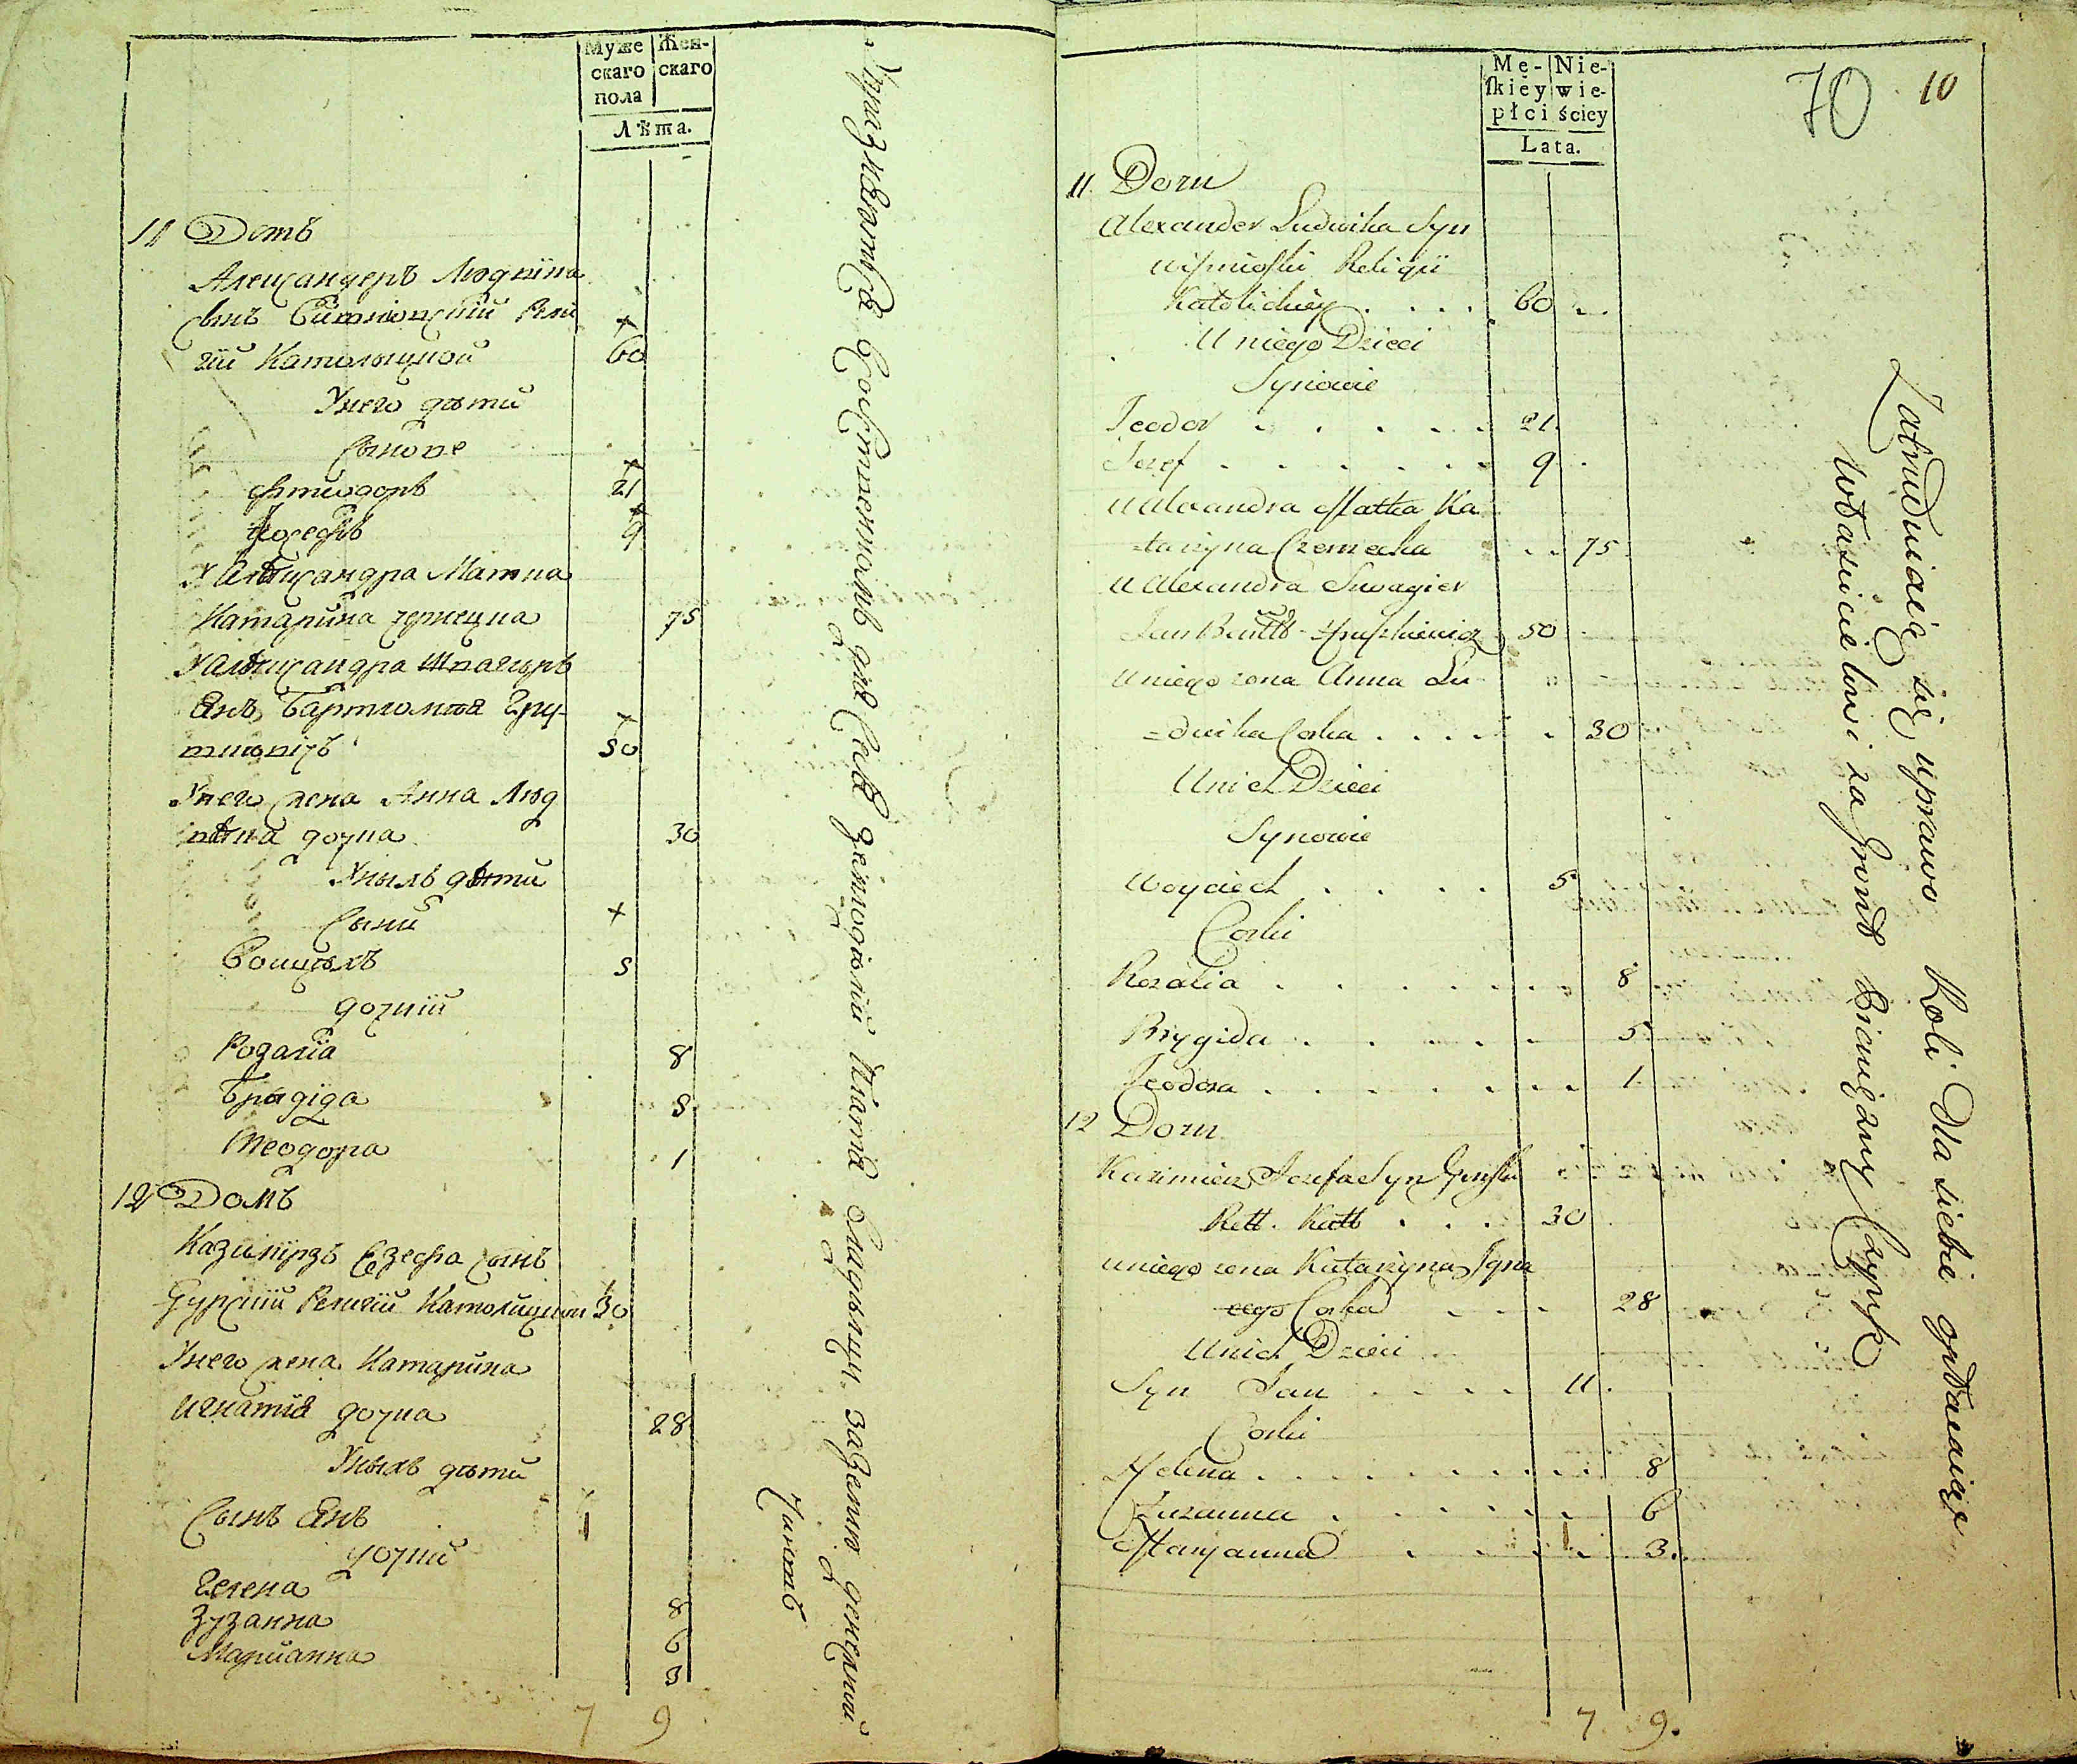 Муже
скаго
пола
Жен-
скаго
Лѣта.
11 Домъ
Александеръ Людвика
сынъ Вишніовскій Рели
гіи Католыцкой 60
Унего дѣти
Сынове
Фтиодоръ 21
Іосефъ 9
У Алѣксандра Матка
Катарина чернецка 75
У Алѣксандра Швагеръ
Янъ Бартломѣя Гру-
50
Унего жена Анна Люд
вѣка дочка 30
Уныхъ дѣти
Сыни
Войцѣхъ 5
дочкіи
Розалія 8
Брыгіда 5
Теодора 1
12 Домъ
Казимірзъ Езефа сынъ
Гурскіи Религіи Католицкой 30
Унего жена Катарина
Игнатія дочка 28
Уныхъ дѣти
Сынъ Янъ 11
дочкіи
Гелена 8
Зузанна 6
Марианна 3
7 9
Упражняются собственнымъ для себя земледѣліемъ платя владѣльцу за землю денежный
Чиншъ
Mę-
ſkiéy
płci
Nie-
wie-
ściey
Lata.
70 10
11 Dom
Alexander Ludwika Syn
Wiſznioſki Religii
Katolickiey . . . . 60
U niego Dzieci
Synowie
Teodor . . . . . . 21
Jozef . . . . . . 9
U Alexandra Matka Ka
tarzyna Czernecka . . 75
U Alexandra Swagier
Jan 50
U niego zona Anna Lu
=dwika Corka . . . . . 30
U nich Dzieci
Synowie
Woyciech . . . . 5
Corki
Rozalia . . . . . . . 8
Brygida . . . . . 5
Teodora . . . . . . . 1
12 Dom
Kazimierz Jozefa Syn Gurſki
Rell. Katt . . . 30
U niego zona Katarzyna Igna
cego Corka . . . 28
U nich Dzieci
Syn Jan . . . . 11
Corki
Helena . . . . . . . . . 8
Zuzanna . . . . . . 6
Maryanna . . . . 3
7. 9.
Zatrudniaią się uprawo Roli Dla siebie opłacaiąc
Właścicielowi za Grunt Pieniężny Czynſz